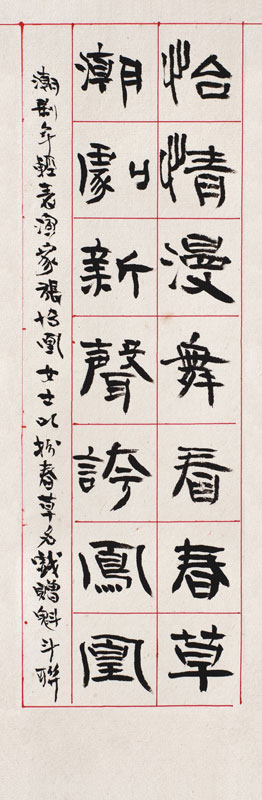 怡情漫舞看春草
潮劇新聲誇鳳凰
潮劇年輕表演家張怡凰女士以扮春草名戲贈魁斗聯